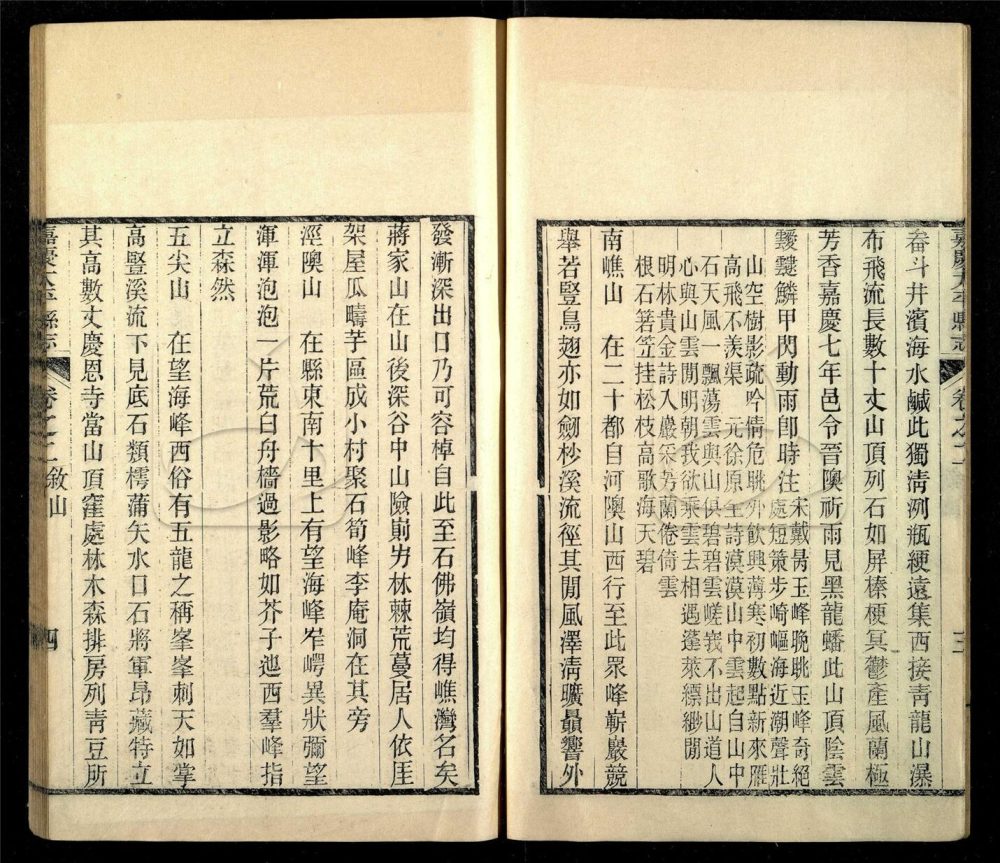 嘉慶太平縣志 卷之二 三
畚斗井濱海水鹹此獨淸洌瓶綆遠集西接靑龍山瀑
布飛流長數十丈山頂列石如屏榛梗冥鬱產風蘭極
芳香嘉慶七年邑令晉隩祈雨見黑龍蟠此山頂陰雲
靉靆鱗甲閃動雨卽時注宋戴昺玉峰晚眺玉峰奇絕
處短策步崎嶇海近潮聲壯
山空樹影疏吟情危眺外飮興薄寒初數點新來雁
高飛不羨渠 元徐原主詩漠漠山中雲起自山中
石天風一飄蕩雲與山俱碧碧雲嵯峩不出山道人
心與山雲閒明朝我欲乘雲去相遇蓬萊縹緲閒
明林貴金詩入巖采芳蘭倦倚雲
根石箬笠挂松枝高歌海天碧
南嶕山 在二十都自河隩山西行至此眾峰嶄巖競
舉若豎鳥翅亦如劒杪溪流徑其閒風澤淸曠最響外
發漸深出口乃可容棹自此至石佛嶺均得嶕灣名矣
蔣家山在山後深谷中山險崱屴林棘荒蔓居人依厓
架屋瓜疇芋區成小村聚石筍峰李庵洞在其旁
涇隩山 在縣東南十里上有望海峰岝崿異狀彌望
渾渾泡泡一片荒白舟檣過影略如芥子迆西羣峰指
立森然
五尖山 在望海峰西俗有五龍之稱峯峯刺天如掌
高豎溪流下見底石類樗蒲矢水口石將軍昂藏特立
其高數丈慶恩寺當山頂窪處林木森排房列靑豆所
嘉慶太平縣志 卷之二 敘山 四